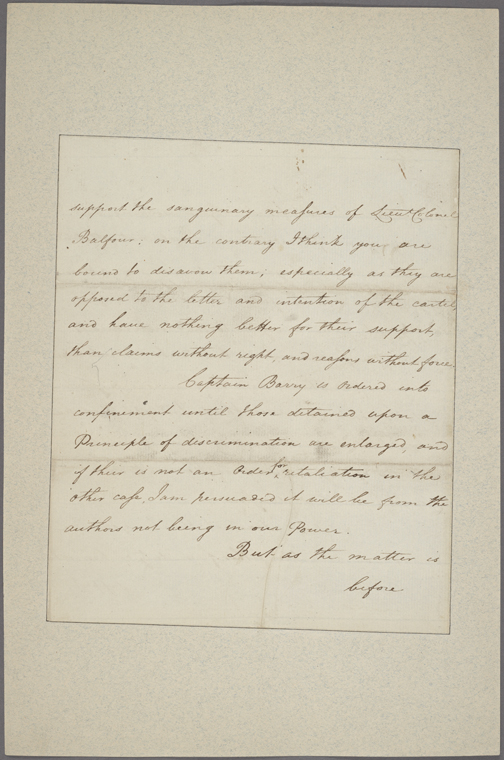 support the sanguinary measures of Lieut Colonel
Balfour; on the contrary I think you are
bound to disavow them; especially as they are
opposed to the letter and intention of the cartel,
and have nothing better for their support,
than claims without right, and reasons without force.
Captain Barry is ordered into
confinement until those detained upon a
Principle of discrimination are enlarged, and
if their is not an order for retaliation in the
other case, I am persuaded it will be from the
authors not being in our Power.
But as the matter is
before